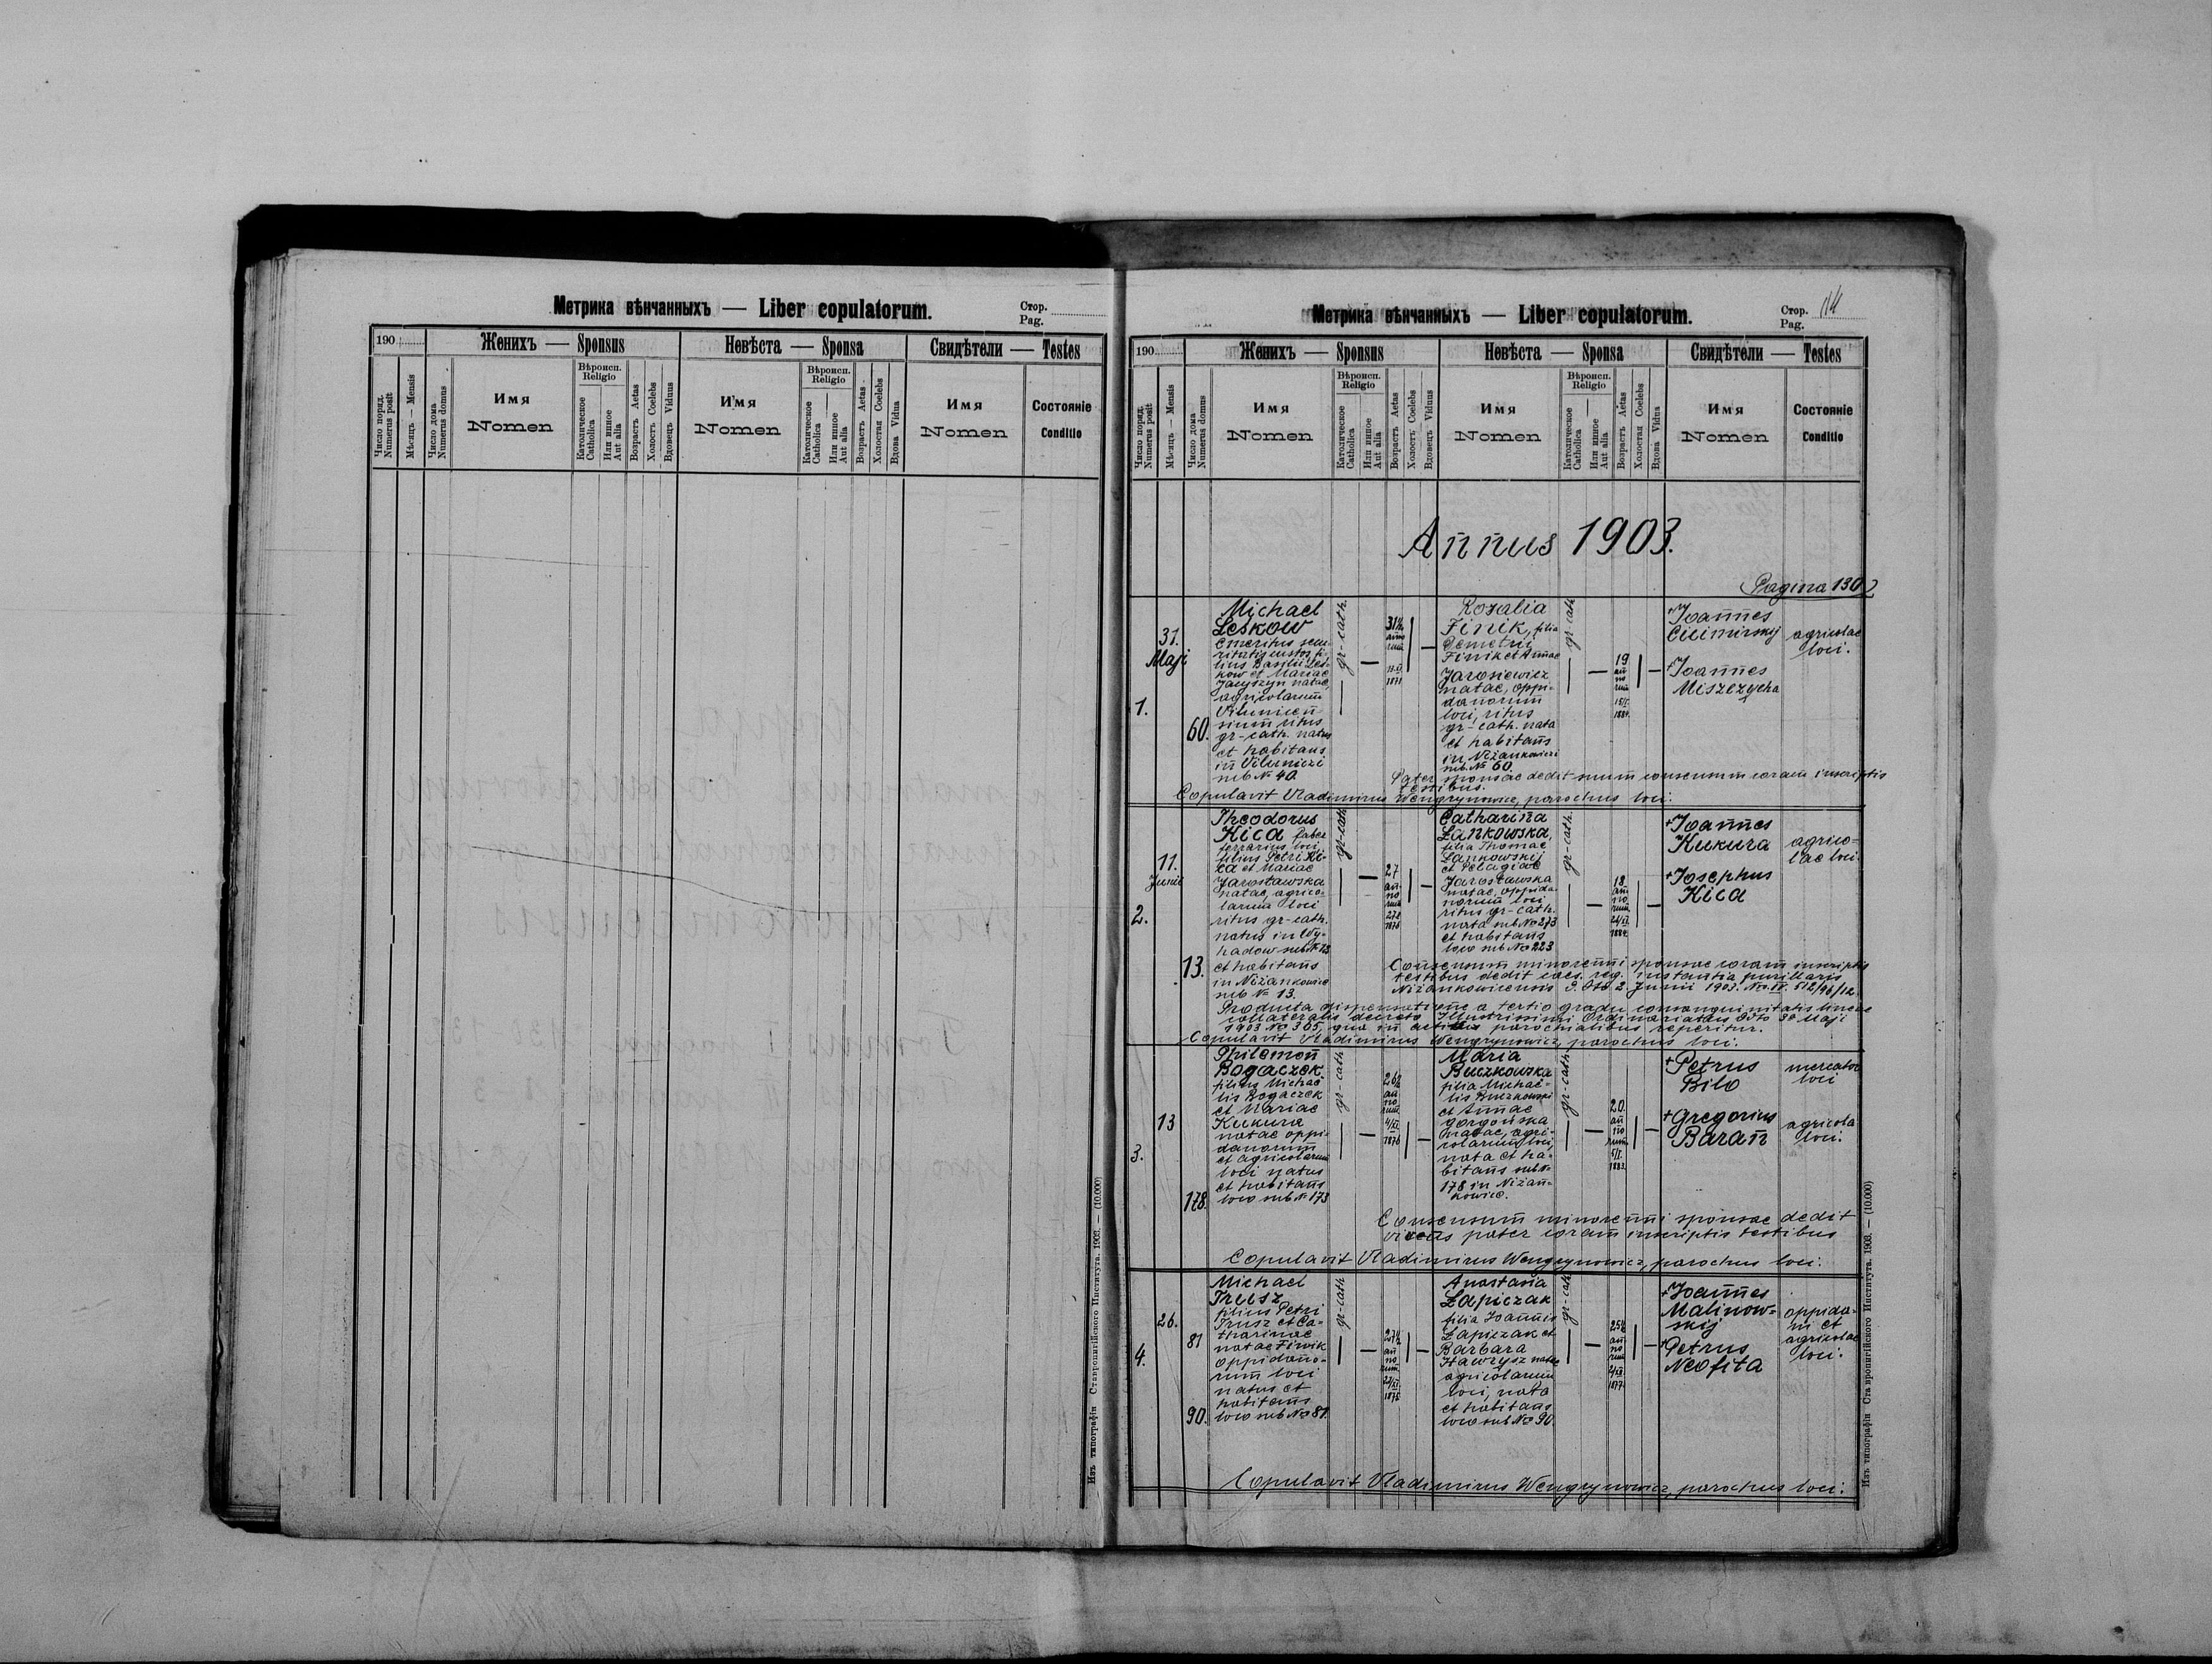 Метрика вѣнчанныхъ — Liber copulatorum.
Стор.
Pag.
190
Женихъ — Sponsus
Невѣста — Sponsa
Свидѣтели — Testes
Число поряд.
Numerus posit
Мѣсяцъ — Mensis
Число дома
Numerus domus
Имя
Nomen
Вѣроисп.
Religio
Католическое
Catholica
Или иное
Aut alia
Возрастъ Aetas
Холостъ Coelebs
Вдовецъ Viduus
Имя
Nomen
Вѣроисп.
Religio
Католическое
Catholica
Или иное
Aut alia
Возрастъ Aetas
Холостая Coelebs
Вдова Vidua
Имя
Nomen
Состояніе
Conditio
Изъ типографіи Ставропигійского Института. 1903. — (10.000)
Метрика вѣнчанныхъ — Liber copulatorum.
Стор. 114
Pag.
190
Женихъ — Sponsus
Невѣста — Sponsa
Свидѣтели — Testes
Число поряд.
Numerus posit
Мѣсяцъ — Mensis
Число дома
Numerus domus
Имя
Nomen
Вѣроисп.
Religio
Католическое
Catholica
Или иное
Aut alia
Возрастъ Aetas
Холостъ Coelebs
Вдовецъ Viduus
Имя
Nomen
Вѣроисп.
Religio
Католическое
Catholica
Или иное
Aut alia
Возрастъ Aetas
Холостая Coelebs
Вдова Vidua
Имя
Nomen
Состояніе
Conditio
Annus 1903.
Pagina 130
1.
31.
Maji
60.
Michael
Leskow
Emeritus secu-
ritatis custos fi-
lius Basilii Les-
kow et Mariae
natae,
agricolarum
sium ritus
gr-cath. natus
et habitans
in
sub № 40.
gr-cath.
31½
anno
rum
1871
Rozalia
Finik, filia
Demetrii
Finik et Annae
Jarosiewicz
natae, oppi-
danorum
loci, ritus
gr-cath. nata
et habitans
in Niżankowici
sub № 60.
gr-cath
19
an
no
rum
15/I.
1884.
+Joannes
+Joannes
Miszczycha
agricolae
loci.
Pater sponsae dedit suum consensum coram inscriptis
testibus.
Copulavit Vladimirus Wengrynowicz, parochus loci.
2.
11.
Junii
13.
Theodorus
Kica faber
ferrarius loci,
filius Petri Ki-
ca et Mariae
Jarosławska
natae, agrico-
larum loci
ritus gr-cath.
natus in Wy-
hadow sub №
et habitans
in Niżankowice
sub № 13.
gr-cath.
27
an
no
rum
1876
Catharina
Łankowska,
filia Thomae
Łankowskij
et Pelagiae
Jarosławska
natae, oppida-
norum loci
ritus gr-cath.
nata sub № 273
et habitans
loco sub № 223
gr-cath.
18
an
no
rum
24/XI.
1884.
+Joannes
Kukura
+Josephus
Kica
agrico-
lae loci.
Consensum minorenni sponsae coram inscriptis
testibus dedit caes. reg. instantia pupillaris
Niżankowicensis d. dto 2. Junii 1903. Nr. IV. 512/96/12.
Producta dispensatione a tertio gradu consanguinitatis lineae
collateralis decreto Illustrissimi Ordinariatus ddto 30 Maji
1903 № 305, qua in actibus parochialibus reperitur.
Copulavit Vladimirus Wengrynowicz, parochus loci.
3.
13
178.
Philemon
Bogaczek
filius Michae-
lis Bogaczek
et Mariae
Kukura
natae oppi-
danorum
et agricolarum
loci natus
et habitans
loco sub № 173
gr-cath
26½
an
no
rum
1876
Maria
Buczkowska
filia Michae-
lis Buczkowski
et Annae
Gorgońska
natae, agri-
colarum loci,
nata et ha-
bitans sub №
178 in Niżan-
kowice.
gr-cath.
20.
an
no
rum
5/I.
1883.
+Petrus
Bilo
+Gregorius
Baran
mercator
loci
agricola
loci.
Consensum minorenni sponsae dedit
vivens pater coram inscriptis testibus
Copulavit Vladimirus Wengrynowicz, parochus loci.
4.
26.
81
90.
Michael
Trusz
filius Petri
Trusz et Ca-
tharinae
natae Finik
oppidano-
rum loci
natus et
habitans
loco sub № 81.
gr-cath
27½
an
no
rum
Anastasia
Łapiczak
filia Joannis
Łapiczak et
Barbara
Hawrysz natae
agricolarum
loci, nata
et habitans
loco sub № 90.
gr-cath
25½
an
no
rum
1877.
+Joannes
Malinow-
skij
+Petrus
Neofita
oppida-
ni et
agricolae
loci.
Copulavit Vladimirus Wengrynowicz, parochus loci.
Изъ типографіи Ставропигійского Института. 1903. — (10.000)